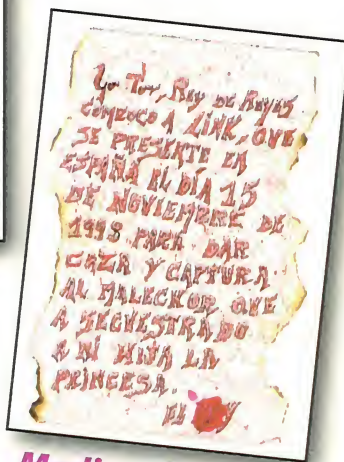 Yo Toy, Rey de Reyes
COMBOCO A LINK, QUE
SE PRESENTE EN
ESPAÑA EL DÍA 15
DE NOVIEMBRE DE
1998 PARA DAR
CAZA Y CAPTURA
AL MALECHOR QUE
A SECUESTRADO
A MI HIJA LA
PRINCESA.
EL